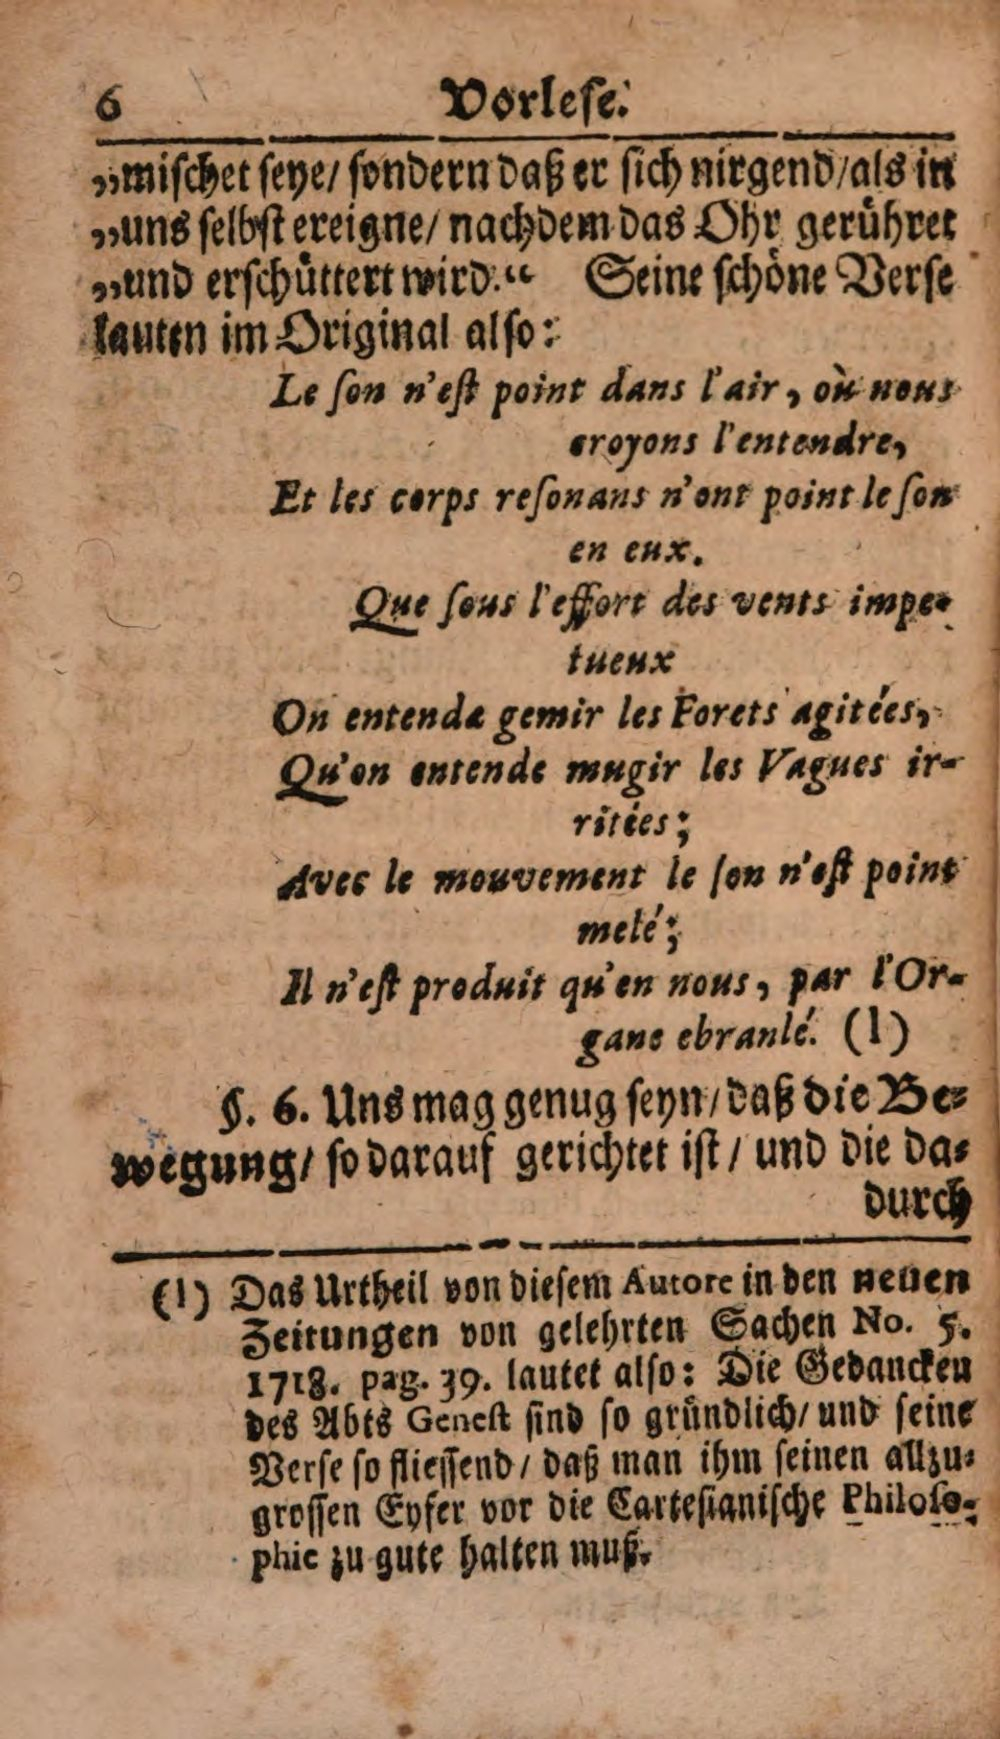 6 Vorlese.
„mischet seye/ sondern daß er sich nirgend/als in
„uns selbst ereigne/ nachdem das Ohr gerühret
„und erschüttert wird.“ Seine schöne Verse
lauten im Original also:
Le son n'est point dans l'air, où nous
croyons l'entendre,
Et les corps resonans n'ont point le son
en eux.
Que sous l'effort des vents impe-
tueux
On entende gemir les Forets agitées,
Qu'on entende mugir les Vagues ir-
ritées;
Avec le mouvement le son n'est point
melé;
Il n'est produit qu'en nous, par l'Or-
gane ebranlé. (l)
§. 6. Uns mag genug seyn/ daß die Be-
wegung/ so darauf gerichtet ist/ und die da-
durch
(l) Das Urtheil von diesem Autore in den neuen
Zeitungen von gelehrten Sachen No. 5.
1718. pag. 39. lautet also: Die Gedancken
des Abts Genest sind so gründlich/ und seine
Verse so fliessend/ daß man ihm seinen allzu-
grossen Eyfer vor die Cartesianische Philoso-
phie zu gute halten muß.